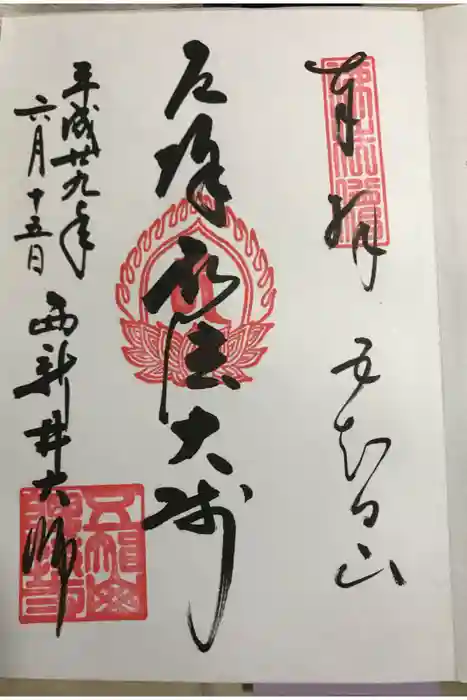 奉拝
五智山
厄除弘法大師
平成廿九年
六月十五日
西新井大師